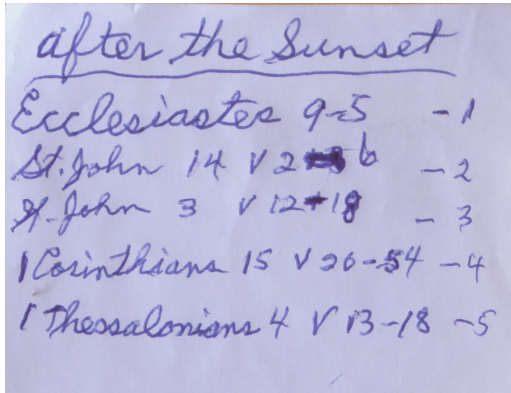 after the Sunset
Ecclesiastes 9-5 -1
St. John 14 V 2 6 -2
St. John 3 V 12+18 -3
1 Corinthians 15 V 20-54 -4
1 Thessalonians 4 V 13-18 -5